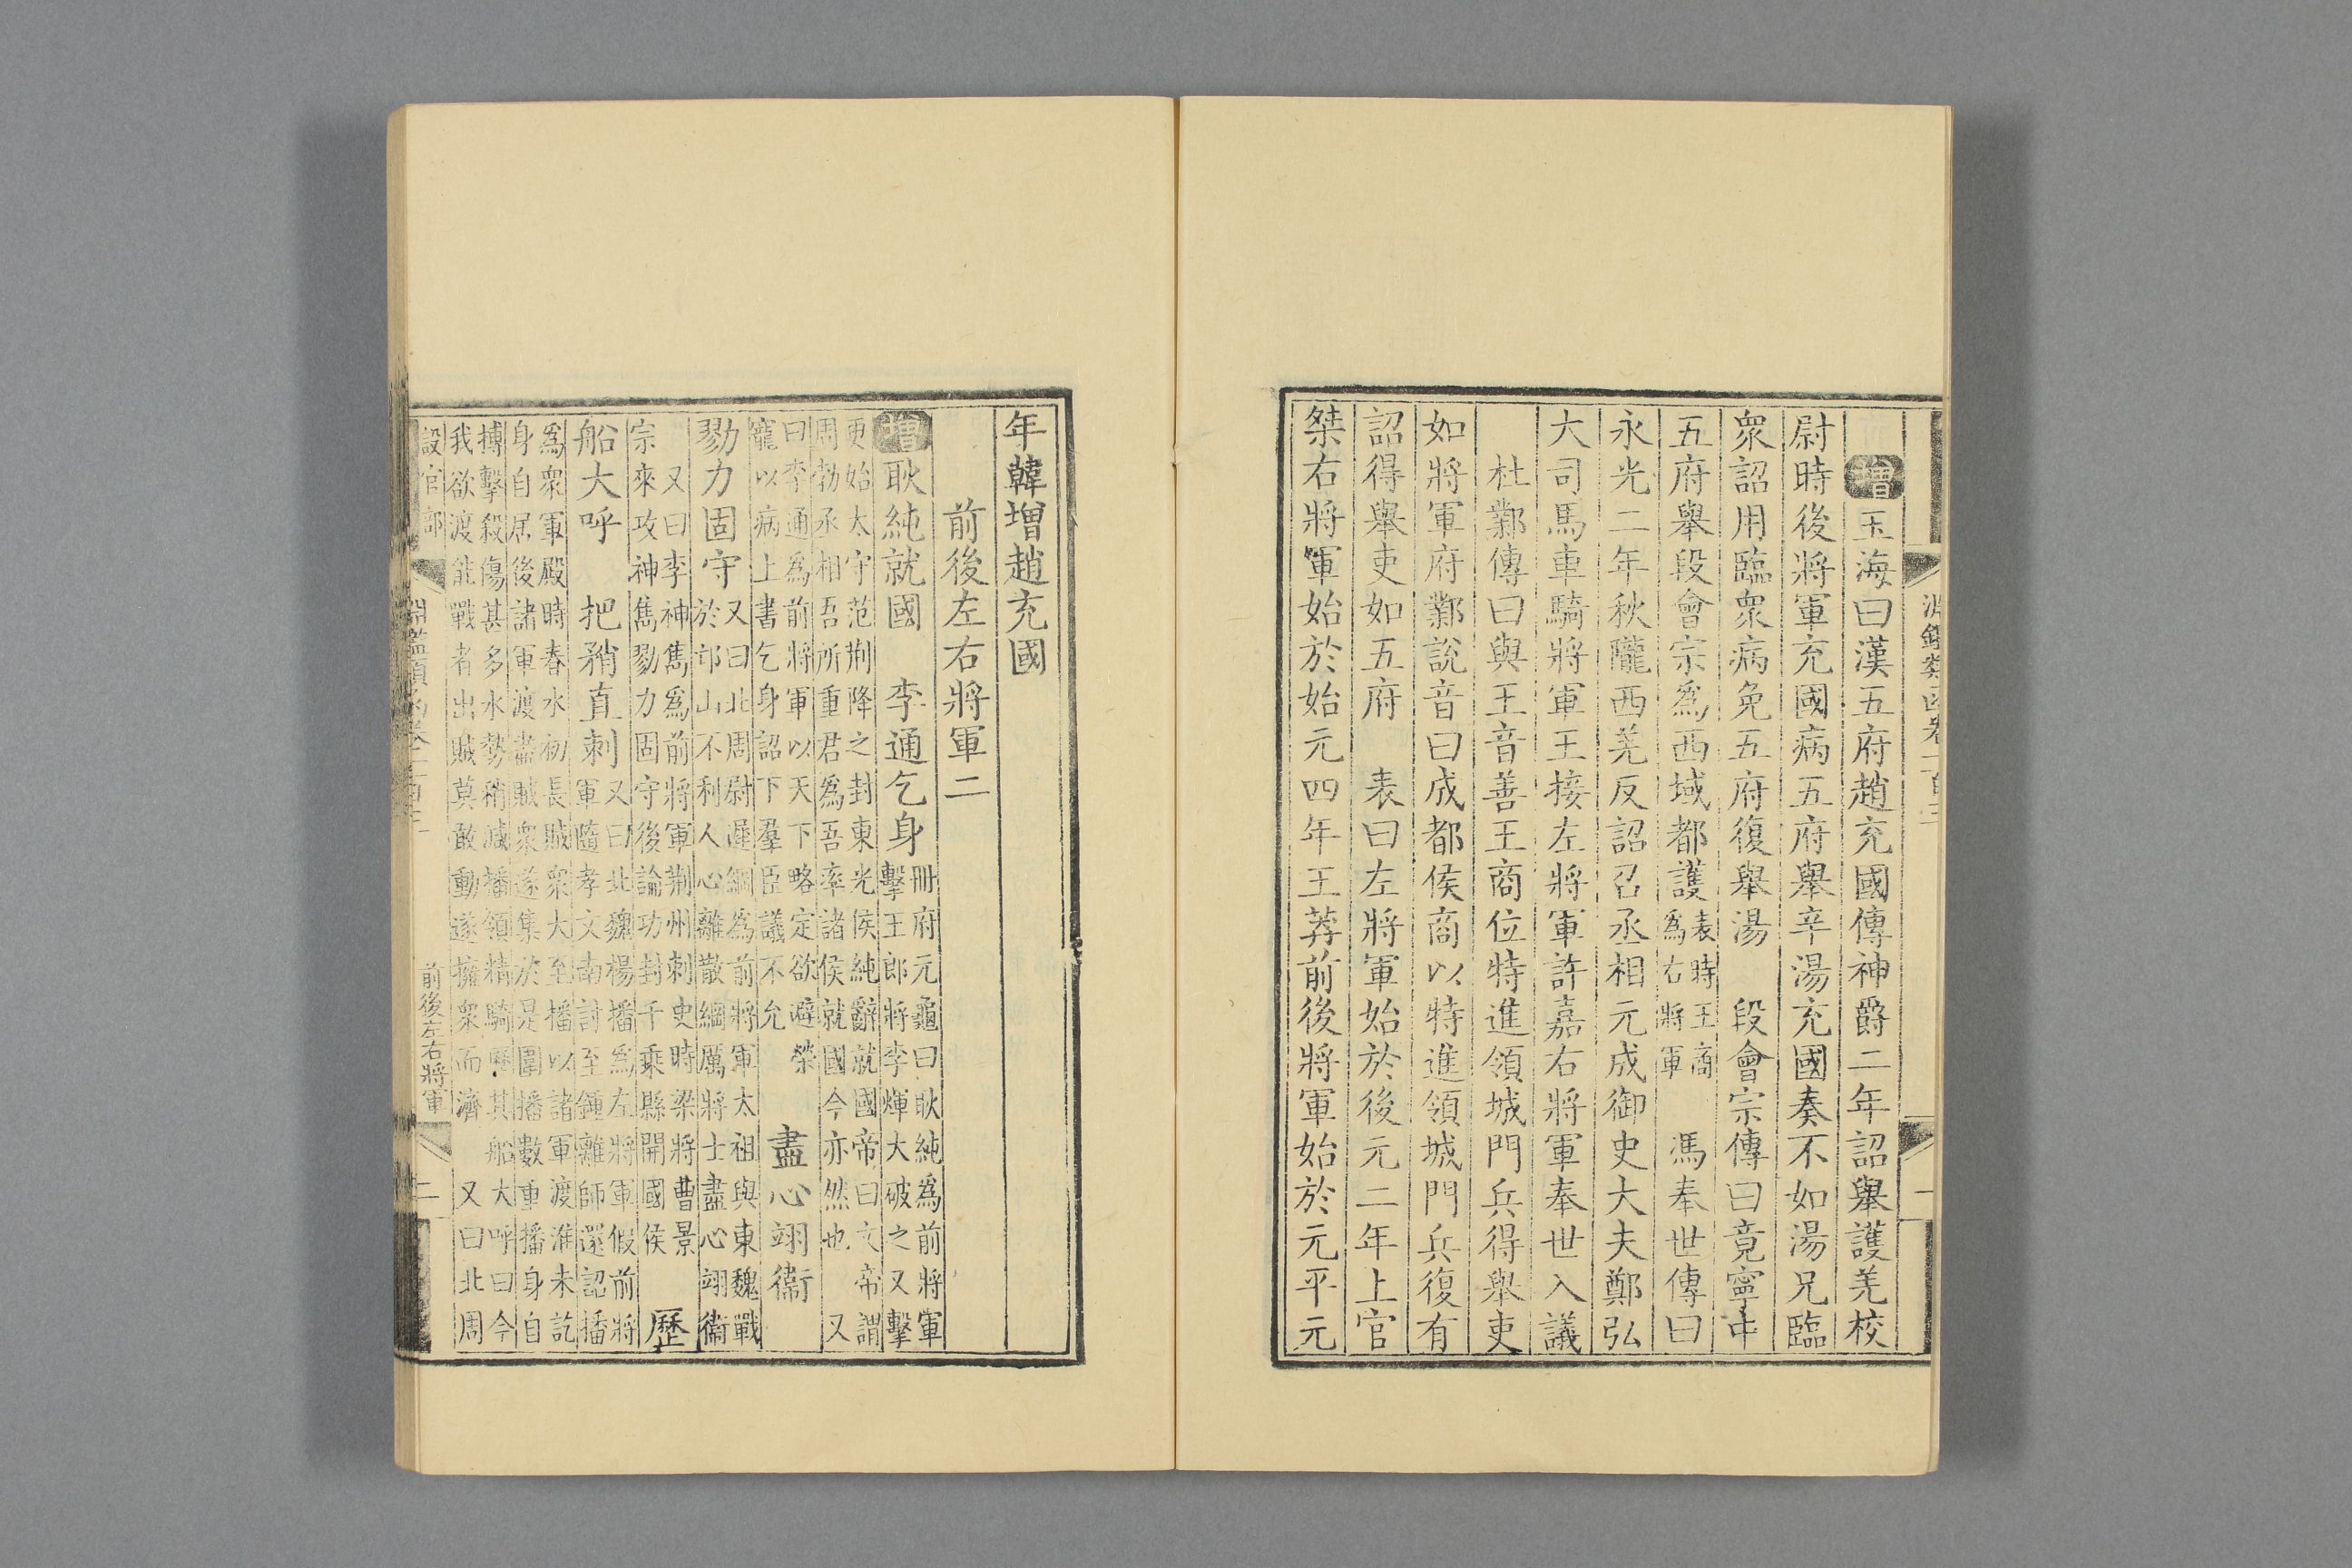 淵鑑類函卷一百
一
增玉海曰漢五府趙充國傳神爵二年詔舉護羌校
尉時後將軍充國病五府舉辛湯充國奏不如湯兄臨
衆詔用臨衆病免五府復舉湯　段會宗傳曰竟寧中
五府舉段會宗爲西域都護表時王商爲右將軍　馮奉世傳曰
永光二年秋隴西羌反詔召丞相元成御史大夫鄭弘
大司馬車騎將軍王接左將軍許嘉右將軍奉世入議
杜鄴傳曰與王音善王商位特進領城門兵得舉吏
如將軍府鄴說音曰成都侯商以特進領城門兵復有
詔得舉吏如五府　表曰左將軍始於後元二年上官
桀右將軍始於始元四年王莽前後將軍始於元平元
年韓增趙充國
前後左右將軍二
增耿純就國　李通乞身冊府元龜曰耿純爲前將軍擊王郎將李煇大破之又擊
更始太守范荆降之封東光侯純辭就國帝曰文帝謂周勃丞相吾所重君爲吾率諸侯就國今亦然也　又
曰李通爲前將軍以天下略定欲避榮寵以病上書乞身詔下羣臣議不允　盡心翊衞
勠力固守又曰北周尉遲綱爲前將軍太祖與東魏戰於邙山不利人心離散綱勵將士盡心翊衞
又曰李神雋爲前將軍荆州刺史時梁將曹景宗來攻神雋勠力固守後論功封千乘縣開國侯　歷
船大呼　把矟直刺又曰北魏楊播爲左將軍假前將軍隨孝文南討至鍾離師還詔播
爲衆軍殿時春水初長賊衆大至播以諸軍渡淮未訖身自居後諸軍渡盡賊衆遂集於是圍播數重播身自
搏擊殺傷甚多水勢稍減播領精騎歷其船大呼曰今我欲渡能戰者出賊莫敢動遂擁衆而濟　又曰北周
設官部
淵鑑類函卷一百
前後左右將軍
二